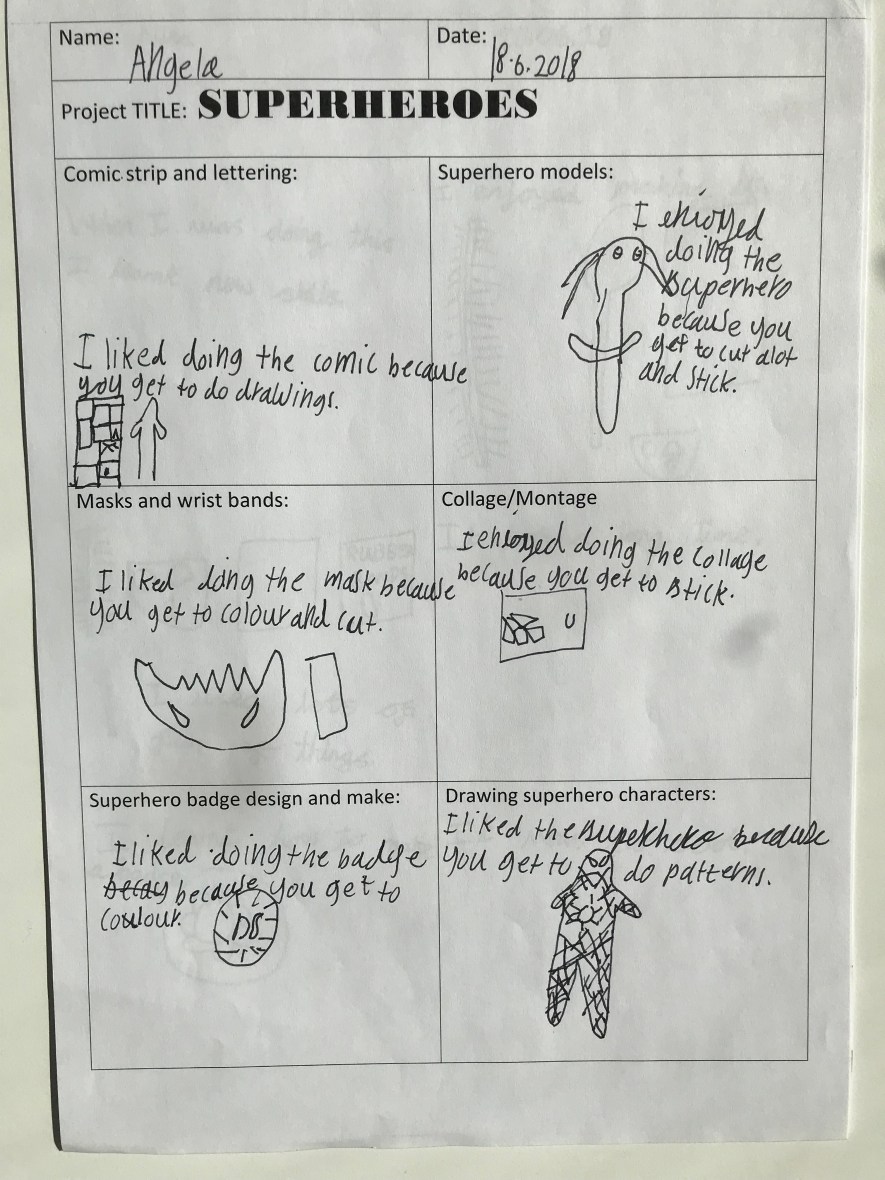 Name:
Angela
Date:
18.6.2018
Project TITLE: SUPERHEROES
Comic strip and lettering:
I liked doing the comic because
you get to do drawings.
Superhero models:
I enioyed
doing the
superhero
because you
get to cut alot
and stick.
Masks and wrist bands:
I liked doing the mask because
you get to colour and cut.
Collage/Montage
I enioyed doing the collage
because you get to stick.
U
Superhero badge design and make:
I liked doing the badge
becay because you get to
coulour.
DB
Drawing superhero characters:
I liked the superhero because
you get to do patterns.